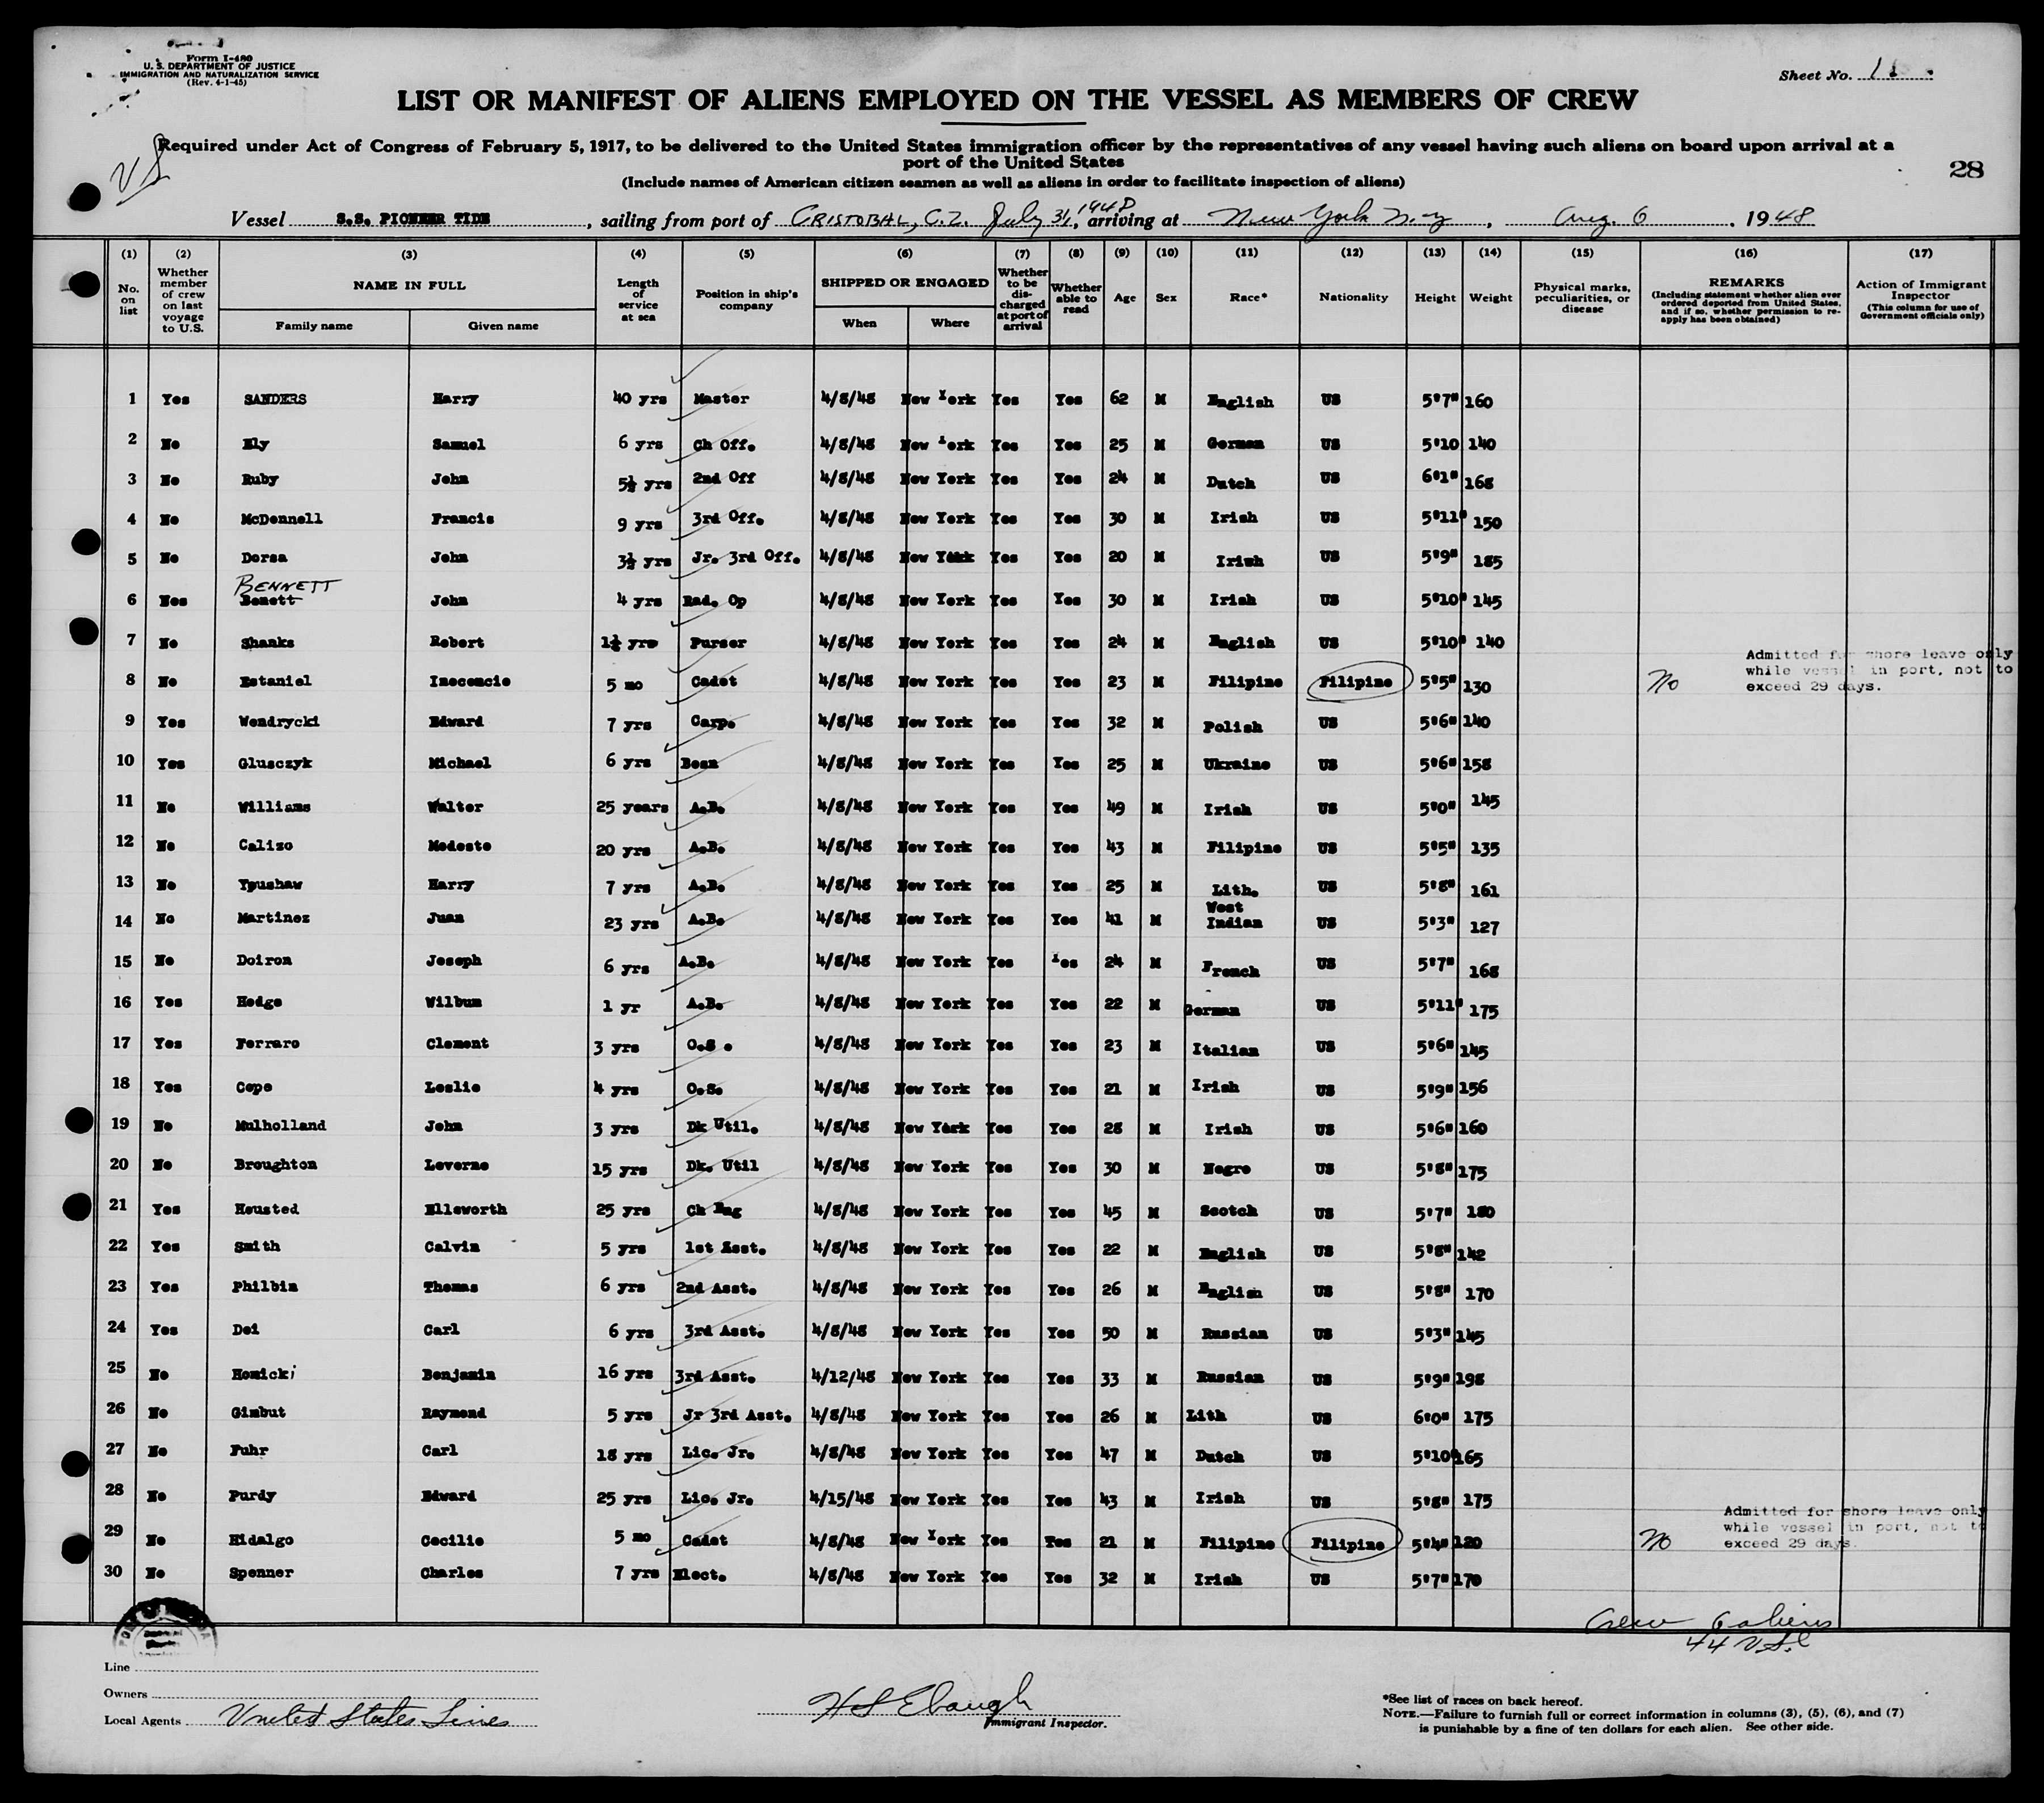 Form I-480
U. S. DEPARTMENT OF JUSTICE
IMMIGRATION AND NATURALIZATION SERVICE
(Rev. 4-1-45)
Sheet No. 1
LIST OR MANIFEST OF ALIENS EMPLOYED ON THE VESSEL AS MEMBERS OF CREW
Required under Act of Congress of February 5, 1917, to be delivered to the United States immigration officer by the representatives of any vessel having such aliens on board upon arrival at a
port of the United States
28
(Include names of American citizen seamen as well as aliens in order to facilitate inspection of aliens)
Vessel S.S. PIONEER TIDE, sailing from port of CRISTOBAL, C.Z. July 31, 1948, arriving at New York N.Y, Aug. 6, 1948
(1) (2) (3) (4) (5) (6) (7) (8) (9) (10) (11) (12) (13) (14) (15) (16) (17)
No. on list Whether member of crew on last voyage to U.S. NAME IN FULL Family name Given name Length of service at sea Position in ship's company SHIPPED OR ENGAGED When Where Whether to be discharged at port of arrival Whether able to read Age Sex Race* Nationality Height Weight Physical marks, peculiarities, or disease REMARKS (Including statement whether alien ever ordered deported from United States, and if so, whether permission to re-apply has been obtained) Action of Immigrant Inspector (This column for use of Government officials only)
1 Yes SANDERS Harry 40 yrs Master 4/8/48 New York Yes Yes 62 M English US 5'7" 160
2 No Ely Samuel 6 yrs Ch Off. 4/8/48 New York Yes Yes 25 M German US 5'10 140
3 No Ruby John 5½ yrs 2nd Off 4/8/48 New York Yes Yes 24 M Dutch US 6'1" 168
4 No McDonnell Francis 9 yrs 3rd Off. 4/8/48 New York Yes Yes 30 M Irish US 5'11" 150
5 No Dorsa John 3½ yrs Jr. 3rd Off. 4/8/48 New York Yes Yes 20 M Irish US 5'9" 185
BENNETT
6 Benett John 4 yrs Rad. Op 4/8/48 New York Yes Yes 30 M Irish US 5'10" 145
7 No Shanks Robert 1½ yrs Purser 4/8/48 New York Yes Yes 24 M English US 5'10" 140
8 No Estaniel Inocencio 5 mo Cadet 4/8/48 New York Yes Yes 23 M Filipino Filipino 5'5" 130 No Admitted for shore leave only while vessel in port, not to exceed 29 days.
9 Yes Wendrycki Edward 7 yrs Carp. 4/8/48 New York Yes Yes 32 M Polish US 5'6" 140
10 Yes Glusczyk Michael 6 yrs Bosn 4/8/48 New York Yes Yes 25 M Ukraine US 5'6" 158
11 No Williams Walter 25 years A.B. 4/8/48 New York Yes Yes 49 M Irish US 5'0" 145
12 No Calizo Modesto 20 yrs A.B. 4/8/48 New York Yes Yes 43 M Filipino US 5'5" 135
13 No Ypushaw Harry 7 yrs A.B. 4/8/48 New York Yes Yes 25 M Lith. US 5'8" 161
14 No Martinez Juan 23 yrs A.B. 4/8/48 New York Yes Yes 41 M West Indian US 5'3" 127
15 No Doiron Joseph 6 yrs A.B. 4/8/48 New York Yes Yes 24 M French US 5'7" 168
16 Yes Hodge Wilbum 1 yr A.B. 4/8/48 New York Yes Yes 22 M German US 5'11" 175
17 Yes Ferraro Clement 3 yrs O.S. 4/8/48 New York Yes Yes 23 M Italian US 5'6" 145
18 Yes Cope Leslie 4 yrs O.S. 4/8/48 New York Yes Yes 21 M Irish US 5'9" 156
19 No Mulholland John 3 yrs Dk Util. 4/8/48 New York Yes Yes 28 M Irish US 5'6" 160
20 No Broughton Leverne 15 yrs Dk. Util 4/8/48 New York Yes Yes 30 M Negro US 5'8" 175
21 Yes Housted Ellsworth 25 yrs Ch Eng 4/8/48 New York Yes Yes 45 M Scotch US 5'7" 180
22 Yes Smith Calvin 5 yrs 1st Asst. 4/8/48 New York Yes Yes 22 M English US 5'8" 142
23 Yes Philbin Thomas 6 yrs 2nd Asst. 4/8/48 New York Yes Yes 26 M English US 5'8" 170
24 Yes Dei Carl 6 yrs 3rd Asst. 4/8/48 New York Yes Yes 50 M Russian US 5'3" 145
25 No Homicki Benjamin 16 yrs 3rd Asst. 4/12/48 New York Yes Yes 33 M Russian US 5'9" 198
26 No Gimbut Raymond 5 yrs Jr 3rd Asst. 4/8/48 New York Yes Yes 26 M Lith US 6'0" 175
27 No Fuhr Carl 18 yrs Lic. Jr. 4/8/48 New York Yes Yes 47 M Dutch US 5'10" 165
28 No Purdy Edward 25 yrs Lic. Jr. 4/15/48 New York Yes Yes 43 M Irish US 5'8" 175
29 No Hidalgo Cecilio 5 mo Cadet 4/8/48 New York Yes Yes 21 M Filipino Filipino 5'4" 120 No Admitted for shore leave only while vessel in port, not to exceed 29 days.
30 No Spenner Charles 7 yrs Elect. 4/8/48 New York Yes Yes 32 M Irish US 5'7" 170
Crew 6 aliens
44 U.S.C
Line
Owners
Local Agents United States Lines
HS Ebaugh
Immigrant Inspector.
*See list of races on back hereof.
NOTE.—Failure to furnish full or correct information in columns (3), (5), (6), and (7)
is punishable by a fine of ten dollars for each alien. See other side.